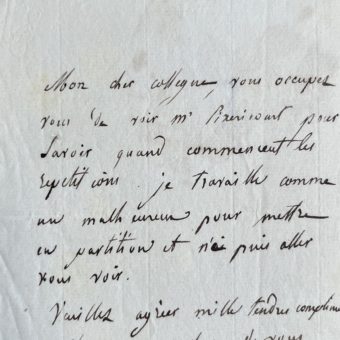 Mon cher collegue, vous occupez
vous de voir mr Pixericourt pour
savoir quand commencent les
repetitions. je travaille comme
un malheureux pour mettre
en partition et n'ai puis aller
vous voir.
Veuillez agréer mille tendres complimen
de vous